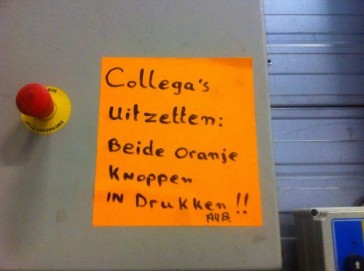 Collega's
Uitzetten:
Beide Oranje
Knoppen
IN Drukken!!
AUB.